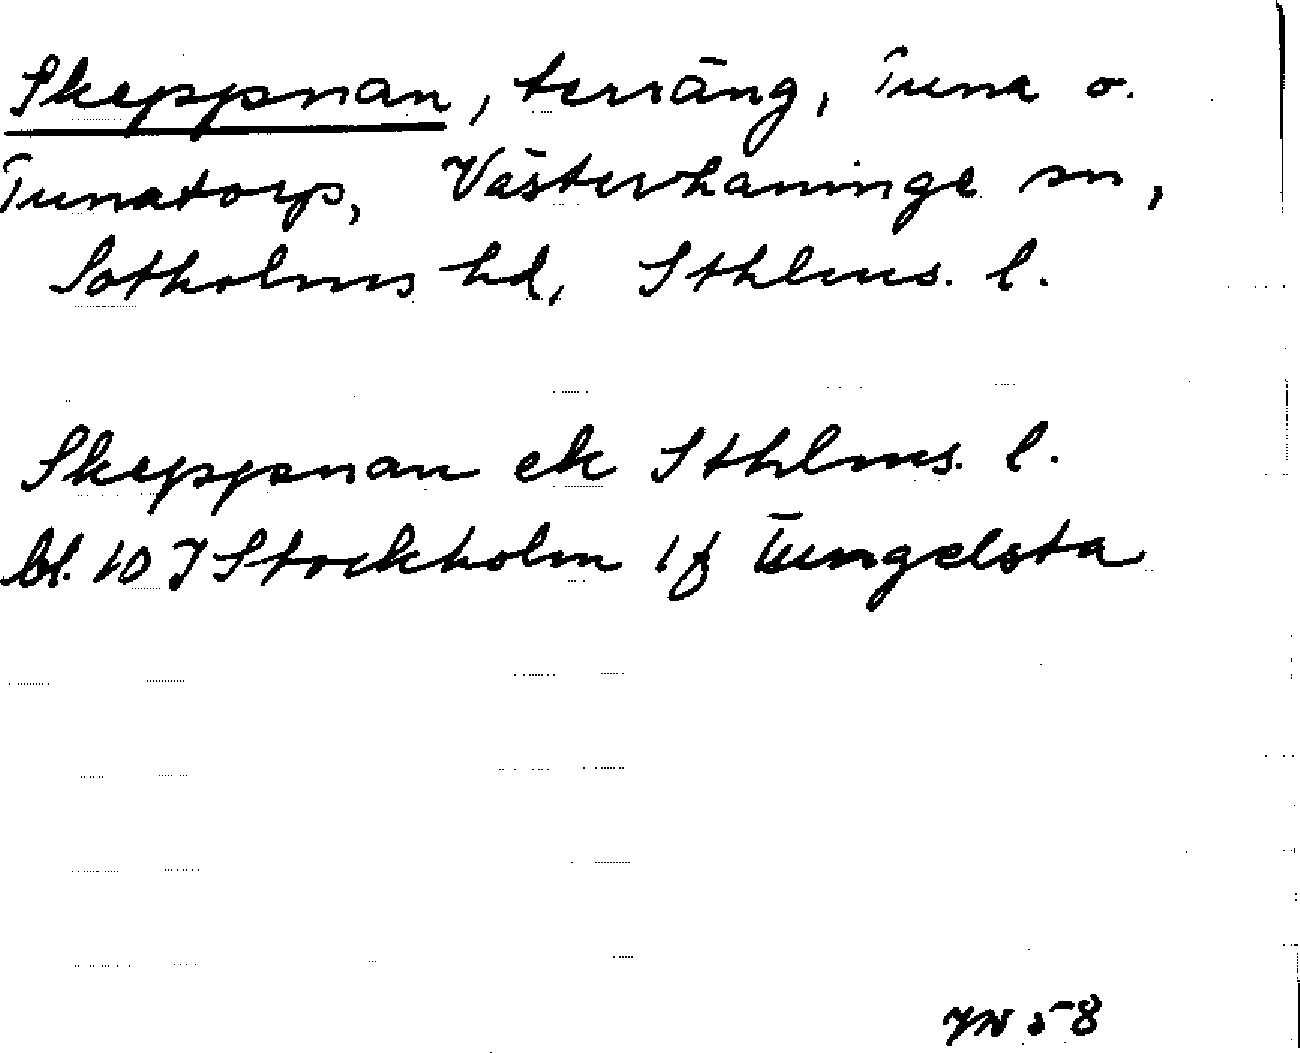 Skeppnan, terräng, Tuna o.
Tunatorp, Västerhaninge sn,
Sotholms hd, Sthlms. l.
Skeppsnan ek Sthlms. l.
bl. 10 I Stockholm if Tungelsta
58